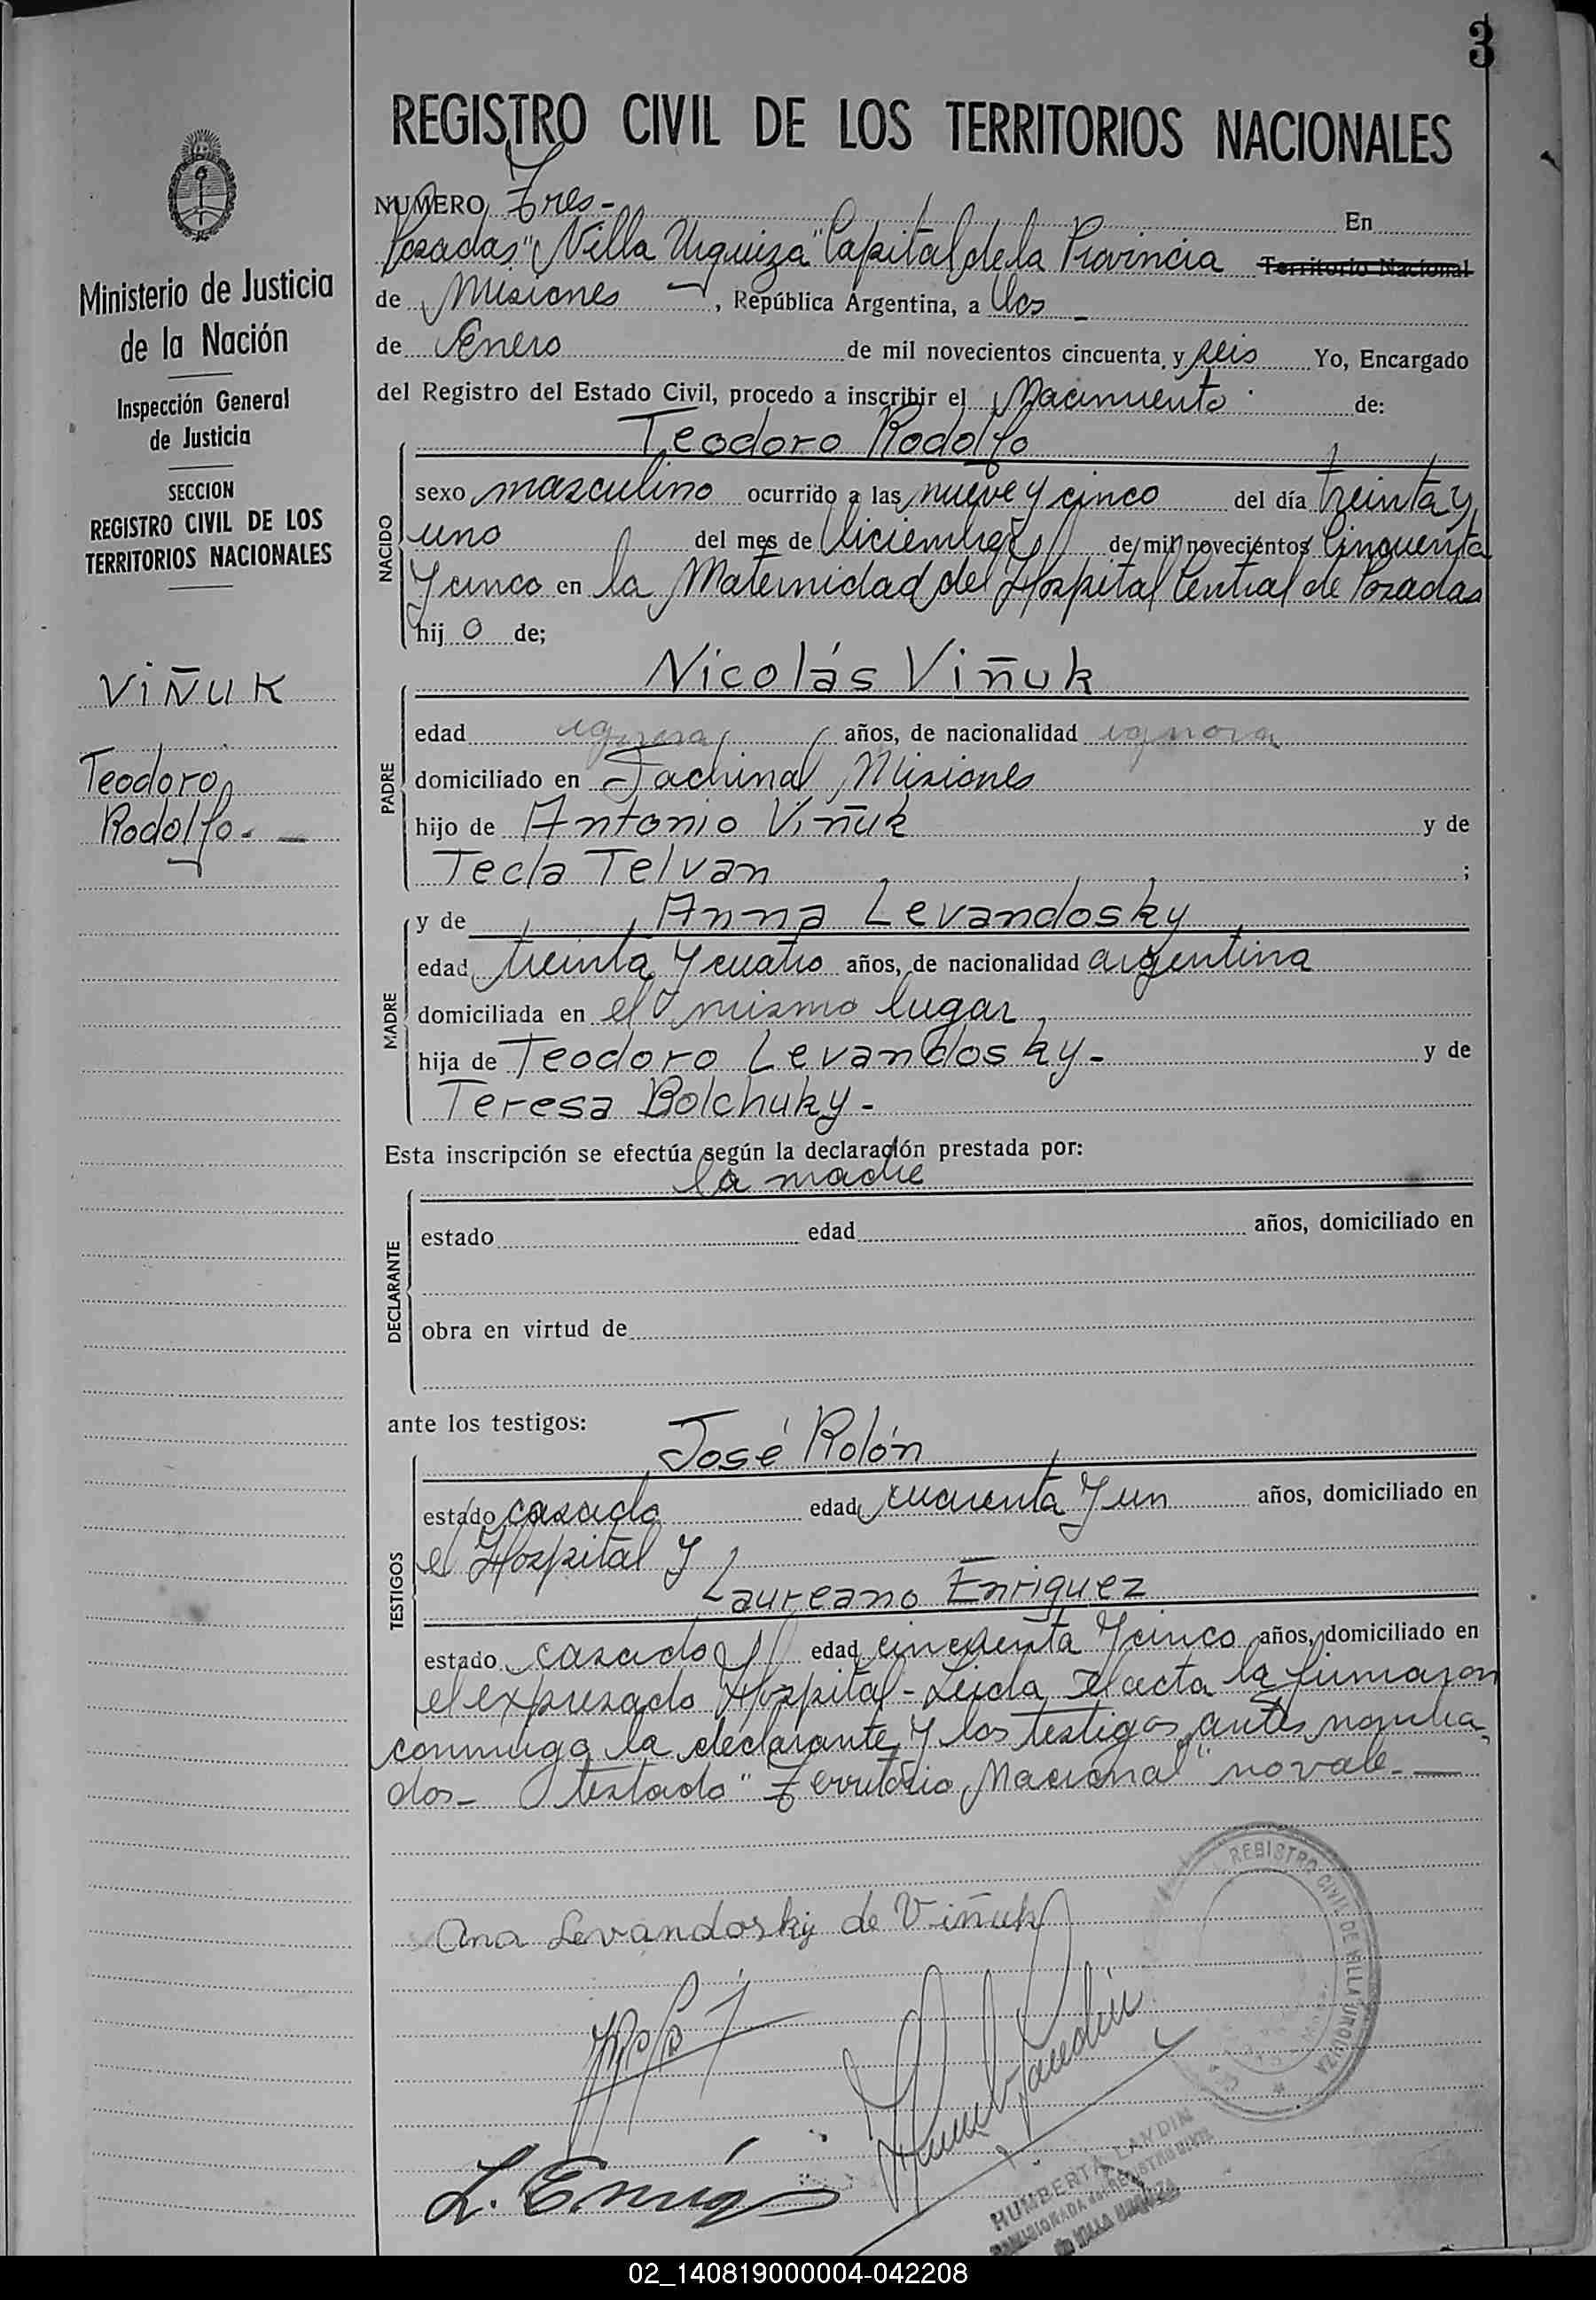 3
REGISTRO CIVIL DE LOS TERRITORIOS NACIONALES
Ministerio de Justicia
de la Nación
Inspección General
de Justicia
SECCION
REGISTRO CIVIL DE LOS
TERRITORIOS NACIONALES
VIÑUK
Teodoro
Rodolfo.-
NUMERO Tres- En
Posadas "Villa Urquiza" Capital de la Provincia Territorio Nacional
de Misiones, República Argentina, a dos -
de Enero de mil novecientos cincuenta y seis Yo, Encargado
del Registro del Estado Civil, procedo a inscribir el Nacimiento de:
Teodoro Rodolfo
NACIDO
sexo masculino ocurrido a las nueve y cinco del día treinta y
uno del mes de diciembre de mil novecientos cincuenta
y cinco en la Maternidad del Hospital Central de Posadas
hijo de;
PADRE
Nicolás Viñuk
edad ignora años, de nacionalidad ignora
domiciliado en Fachinal Misiones
hijo de Antonio Viñuk y de
Tecla Telvan ;
MADRE
y de Anna Levandosky
edad treinta y cuatro años, de nacionalidad argentina
domiciliada en el mismo lugar
hija de Teodoro Levandosky- y de
Teresa Bolchuky-
Esta inscripción se efectúa según la declaración prestada por:
la madre
DECLARANTE
estado edad años, domiciliado en
obra en virtud de
ante los testigos:
TESTIGOS
José Rolón
estado casado edad cuarenta y un años, domiciliado en
el Hospital y
Laureano Enriquez
estado casado edad cincuenta y cinco años, domiciliado en
el expresado Hospital- Leida el acta la firmaron
conmigo la declarante y los testigos antes nombra-
dos- testado "Territorio Nacional" no vale-
Ana Levandosky de Viñuk
REGISTRO CIVIL DE VILLA URQUIZA
L. Enriq
HUMBERTA LANDIN
del REGISTRO CIVIL
de VILLA URQUIZA
02_140819000004-042208